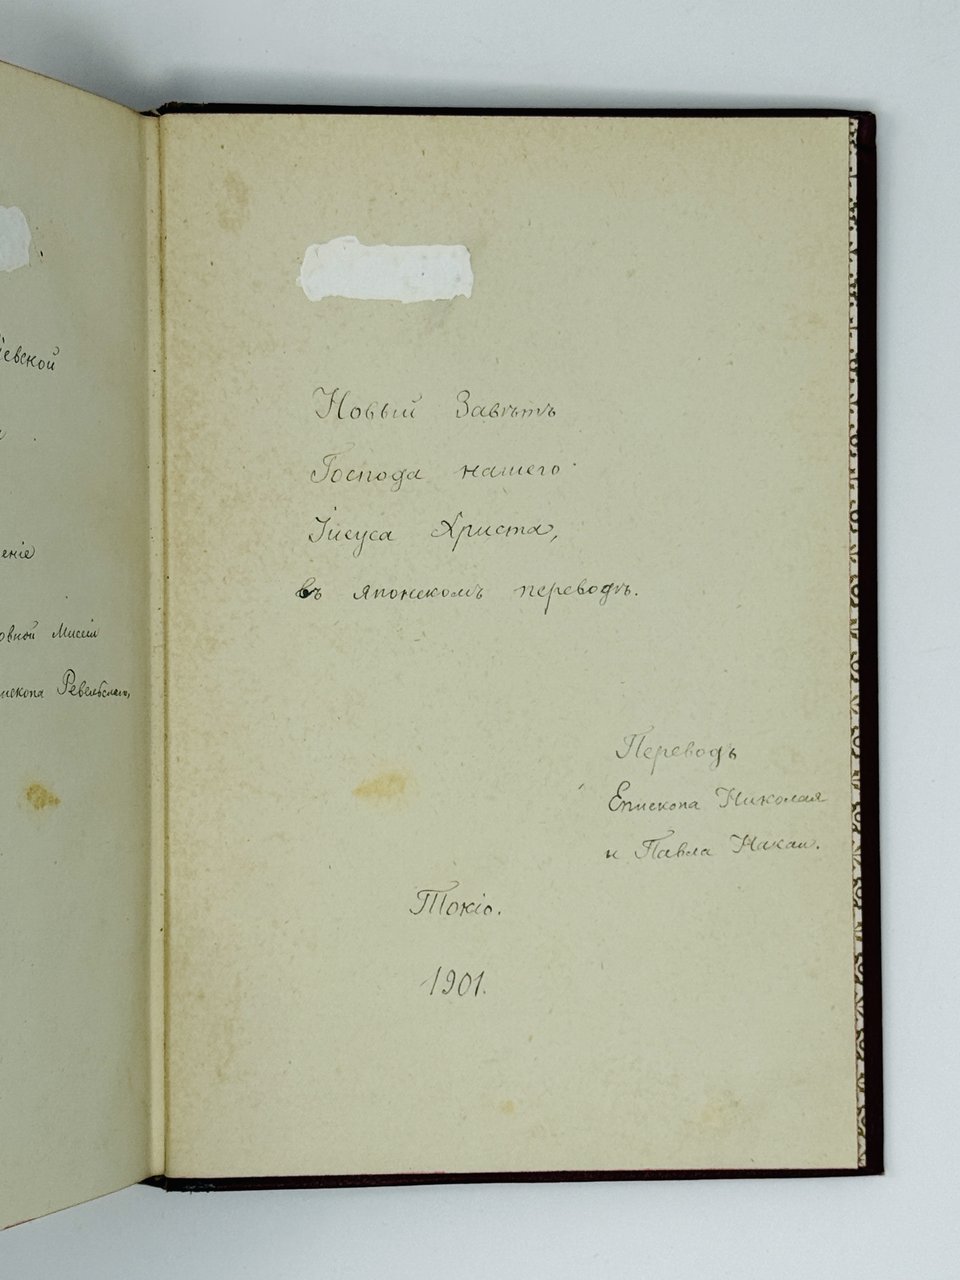 евской
еніе
овной Миссіи
ископа Ревельскаго,
Новый Завѣтъ
Господа нашего
Іисуса Христа,
въ японскомъ переводѣ.
Переводъ
Епископа Николая
и Павла Накаи.
Токіо.
1901.